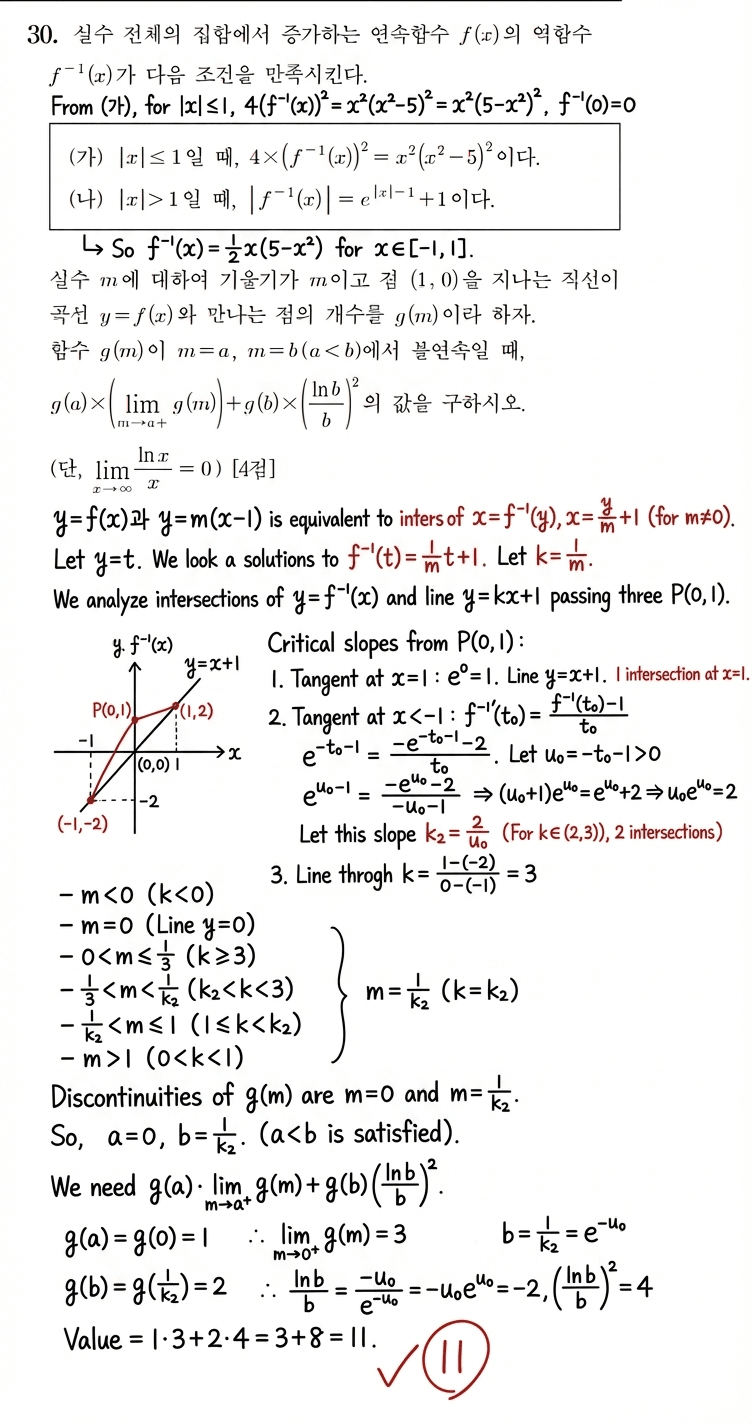 30. 실수 전체의 집합에서 증가하는 연속함수 f(x)의 역함수
f⁻¹(x)가 다음 조건을 만족시킨다.
From (가), for |x|≤1, 4(f⁻¹(x))²=x²(x²-5)²=x²(5-x²)², f⁻¹(0)=0
(가) |x|≤1일 때, 4×(f⁻¹(x))²=x²(x²-5)²이다.
(나) |x|>1일 때, |f⁻¹(x)|=e^{|x|-1}+1이다.
↳ So f⁻¹(x)=½x(5-x²) for x∈[-1, 1].
실수 m에 대하여 기울기가 m이고 점 (1, 0)을 지나는 직선이
곡선 y=f(x)와 만나는 점의 개수를 g(m)이라 하자.
함수 g(m)이 m=a, m=b(a<b)에서 불연속일 때,
g(a)×(lim_{m→a+} g(m))+g(b)×(ln b/b)²의 값을 구하시오.
(단, lim_{x→∞} ln x/x = 0) [4점]
y=f(x)과 y=m(x-1) is equivalent to inters of x=f⁻¹(y), x=y/m+1 (for m≠0).
Let y=t. We look a solutions to f⁻¹(t)=1/m t+1. Let k=1/m.
We analyze intersections of y=f⁻¹(x) and line y=kx+1 passing three P(0,1).
y. f⁻¹(x)
y=x+1
P(0,1)
(1,2)
-1
(0,0)
1
x
-2
(-1,-2)
Critical slopes from P(0,1):
1. Tangent at x=1 : e⁰=1. Line y=x+1. 1 intersection at x=1.
2. Tangent at x<-1 : f⁻¹′(t₀)=(f⁻¹(t₀)-1)/t₀
e^{-t₀-1} = (-e^{-t₀-1}-2)/t₀. Let u₀=-t₀-1>0
e^{u₀-1} = (-e^{u₀}-2)/(-u₀-1) ⇒(u₀+1)e^{u₀}=e^{u₀}+2⇒u₀e^{u₀}=2
Let this slope k₂=2/u₀ (For k∈(2,3)), 2 intersections)
3. Line throgh k=(1-(-2))/(0-(-1))=3
- m<0 (k<0)
- m=0 (Line y=0)
- 0<m≤1/3 (k≥3)
- 1/3<m<1/k₂ (k₂<k<3)
- 1/k₂<m≤1 (1≤k<k₂)
- m>1 (0<k<1)
m=1/k₂ (k=k₂)
Discontinuities of g(m) are m=0 and m=1/k₂.
So, a=0, b=1/k₂. (a<b is satisfied).
We need g(a)·lim_{m→a⁺} g(m)+g(b)(ln b/b)².
g(a)=g(0)=1 ∴ lim_{m→0⁺} g(m)=3 b=1/k₂=e^{-u₀}
g(b)=g(1/k₂)=2 ∴ ln b/b=-u₀/e^{-u₀}=-u₀e^{u₀}=-2, (ln b/b)²=4
Value = 1·3+2·4=3+8=11.
✓ 11